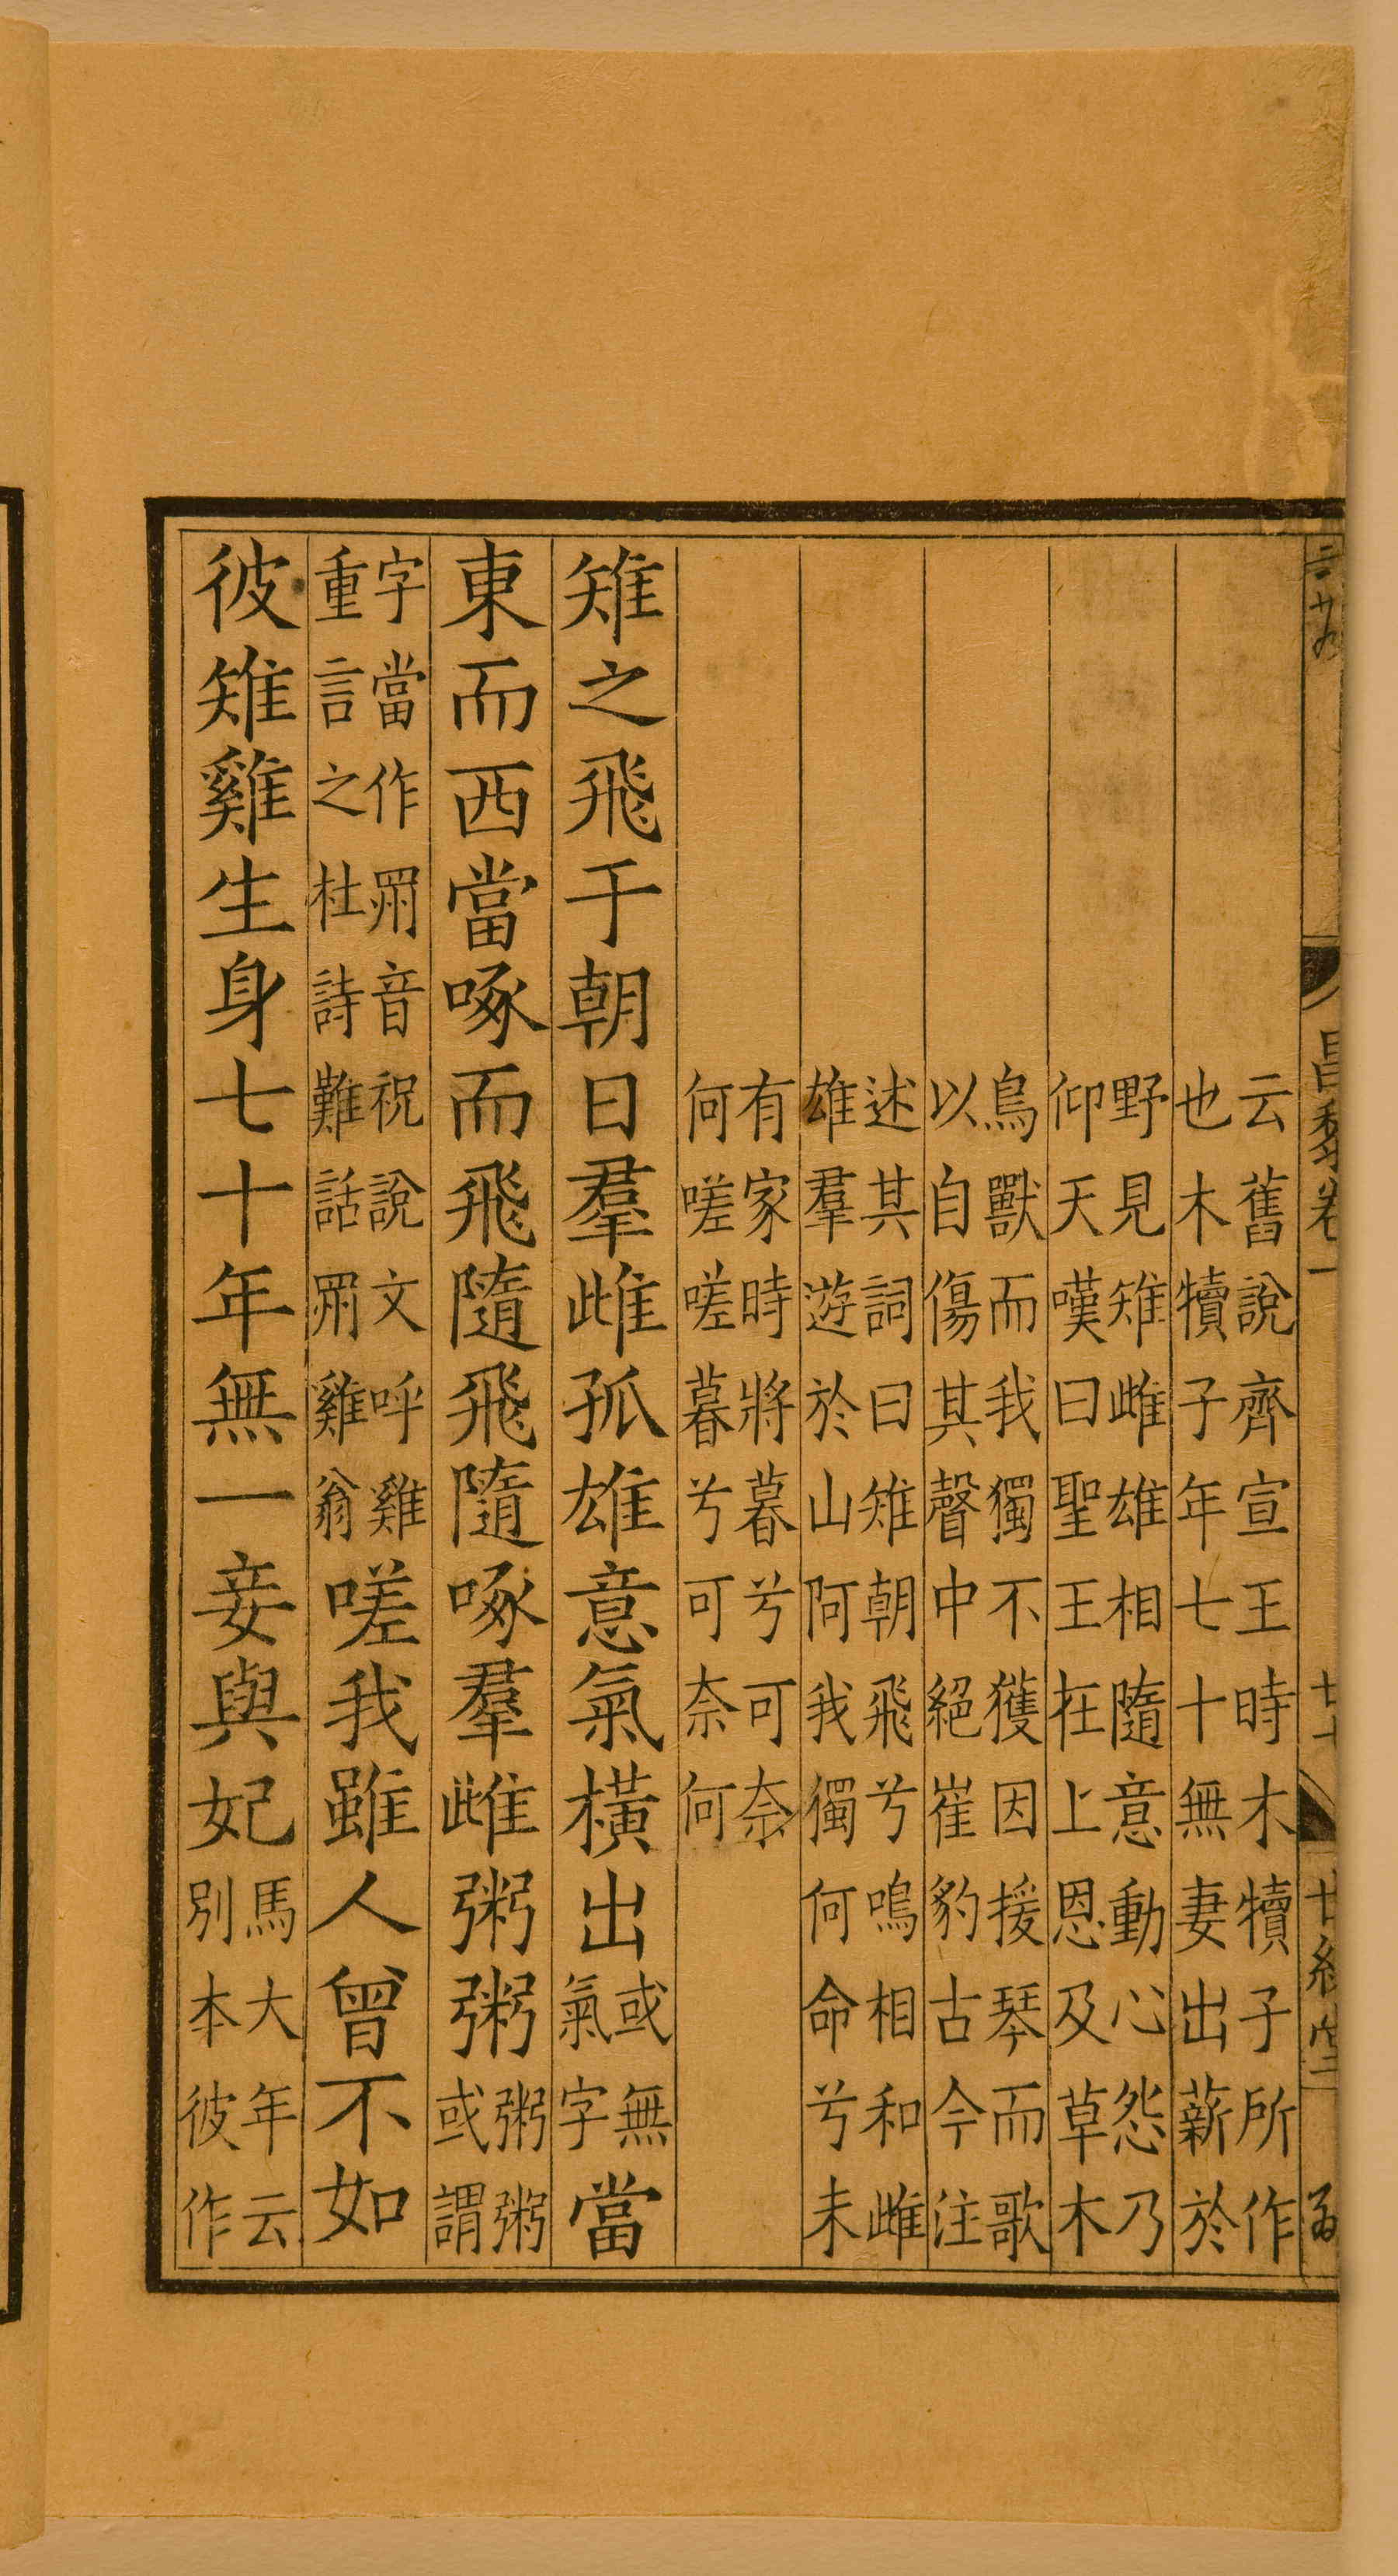 云舊說齊宣王時木犢子所作
也木犢子年七十無妻出薪於
野見雉雌雄相隨意動心怨乃
仰天嘆曰聖王在上恩及草木
鳥獸而我獨不獲因援琴而歌
以自傷其聲中絕崔豹古今注
述其詞曰雉朝飛兮鳴相和雌
雄羣遊於山阿我獨何命兮未
有家時將暮兮可奈
何嗟嗟暮兮可奈何
雉之飛于朝日羣雌孤雄意氣橫出或無氣字當
東而西當啄而飛隨飛隨啄羣雌粥粥粥粥或謂
字當作喌音祝說文呼雞重言之杜詩難話喌雞翁嗟我雖人曾不如
彼雉雞生身七十年無一妾與妃馬大年云別本彼作